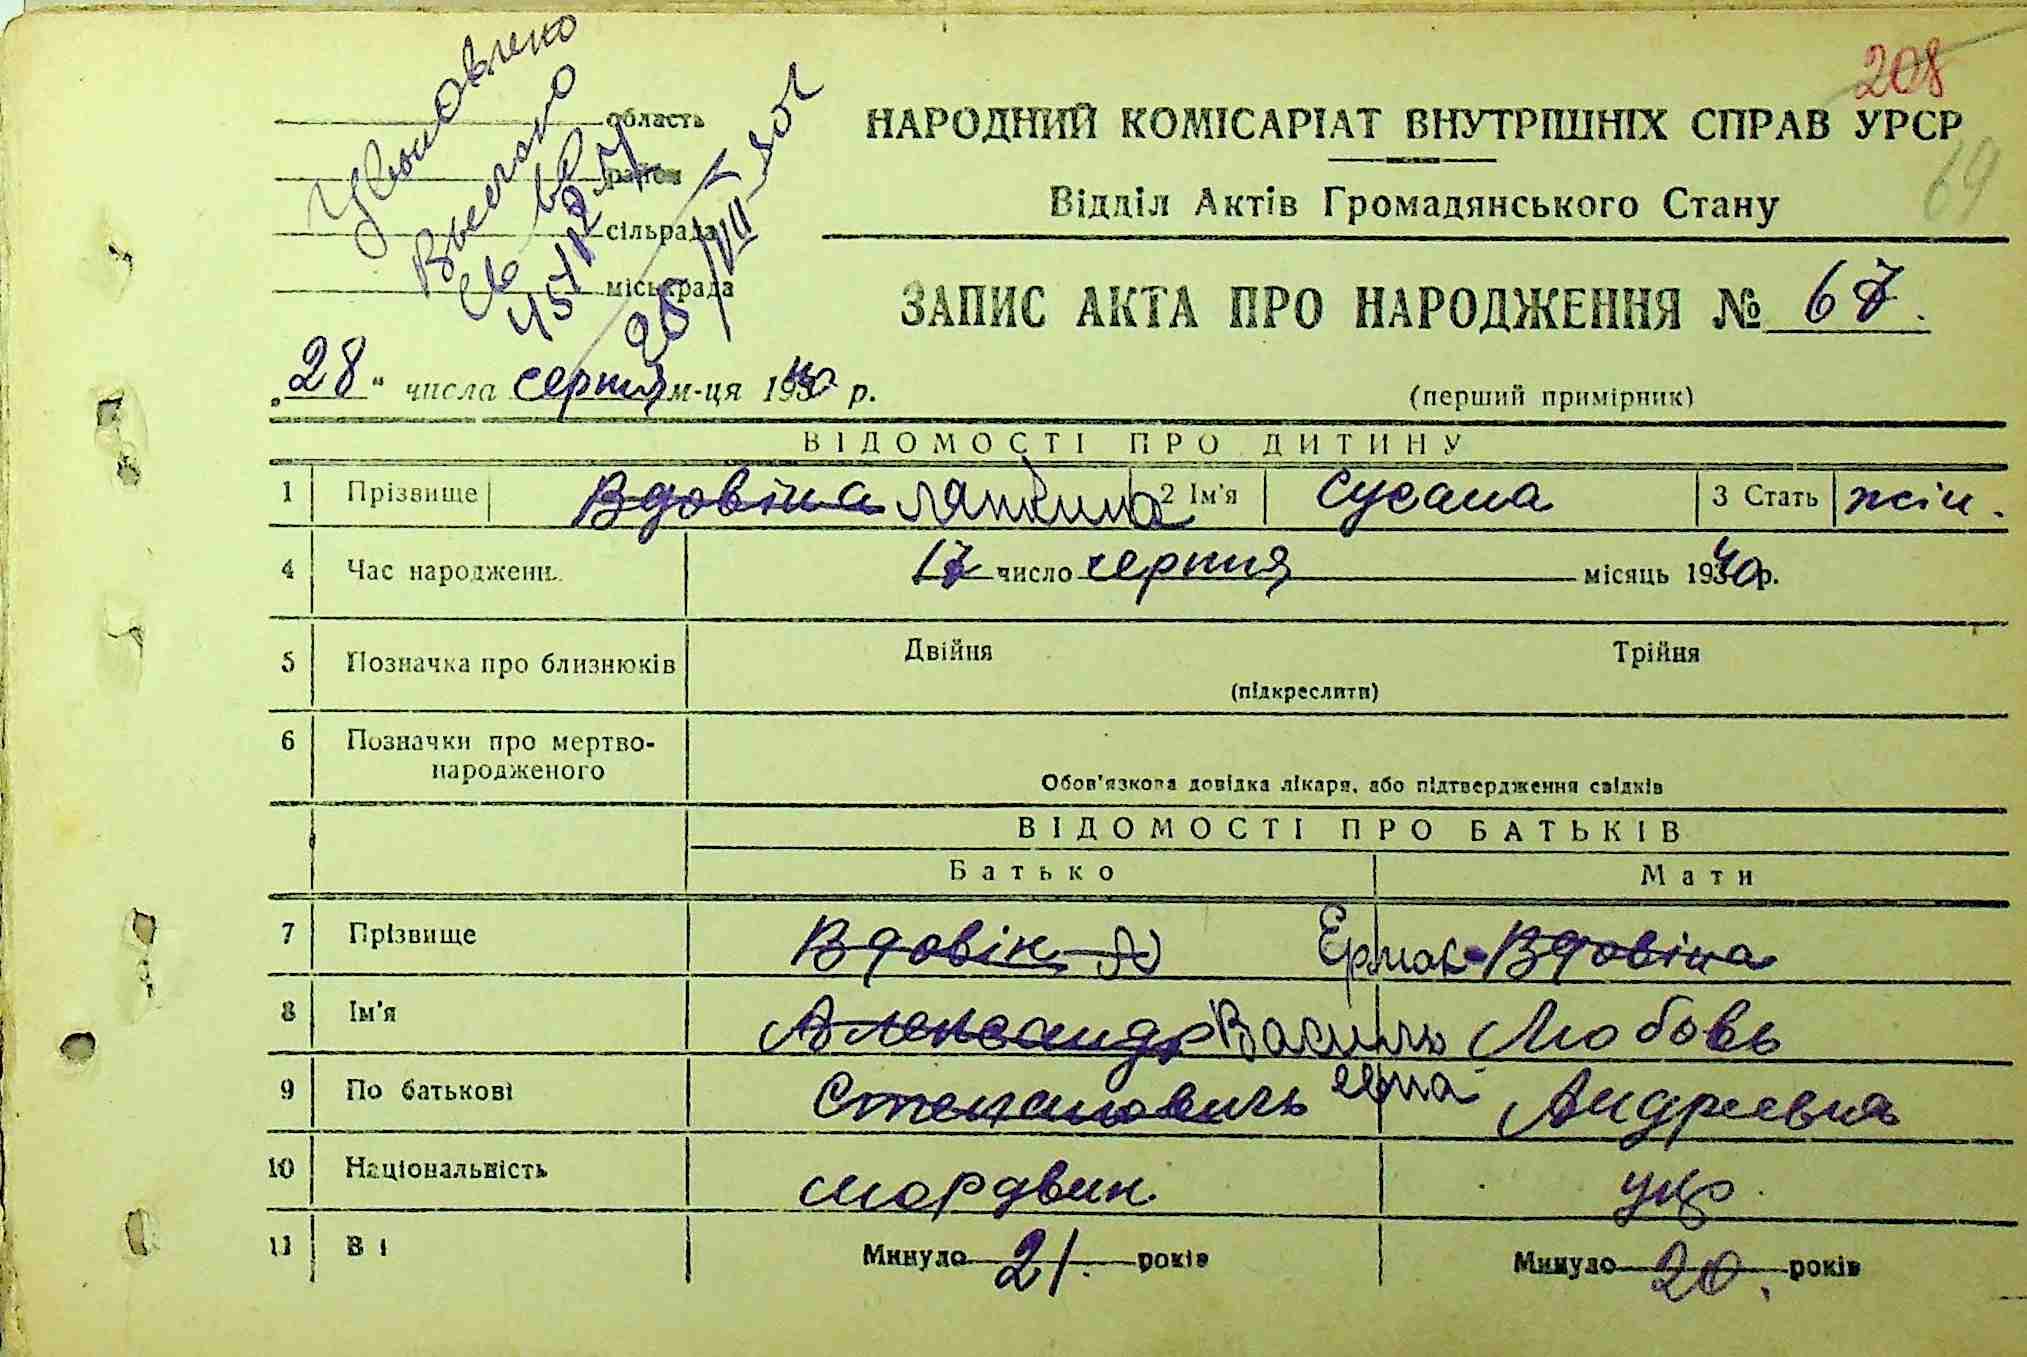 208
69
область
район
сільрада
міськрада
НАРОДНИЙ КОМІСАРІАТ ВНУТРІШНІХ СПРАВ УРСР
Відділ Актів Громадянського Стану
ЗАПИС АКТА ПРО НАРОДЖЕННЯ № 67.
„28" числа серпня м-ця 1940 р.
(перший примірник)
ВІДОМОСТІ ПРО ДИТИНУ
1 Прізвище Вдовіна 2 Ім'я Сусана 3 Стать жін.
4 Час народженн. 17 число серпня місяць 1940р.
5 Позначка про близнюків Двійня Трійня
(підкреслити)
6 Позначки про мертво-
народженого
Обов'язкова довідка лікаря, або підтвердження свідків
ВІДОМОСТІ ПРО БАТЬКІВ
Батько Мати
7 Прізвище Вдовін Ермак-Вдовіна
8 Ім'я Александр Василь Любовь
9 По батькові Степановичь Андреевна
10 Національність мордвин. укр.
11 Ві Минуло 21. років Минуло 20. років